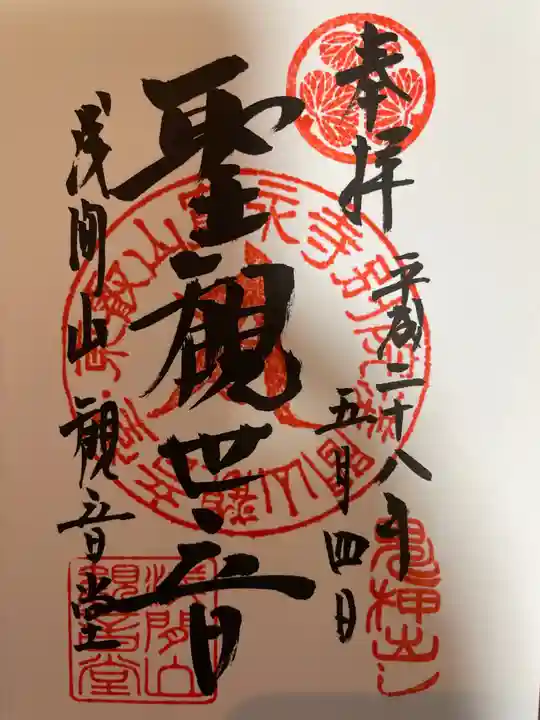 奉拝
平成二十八年
五月四日
聖観世音
浅間山 観音堂
鬼押出し
浅間山
観音堂